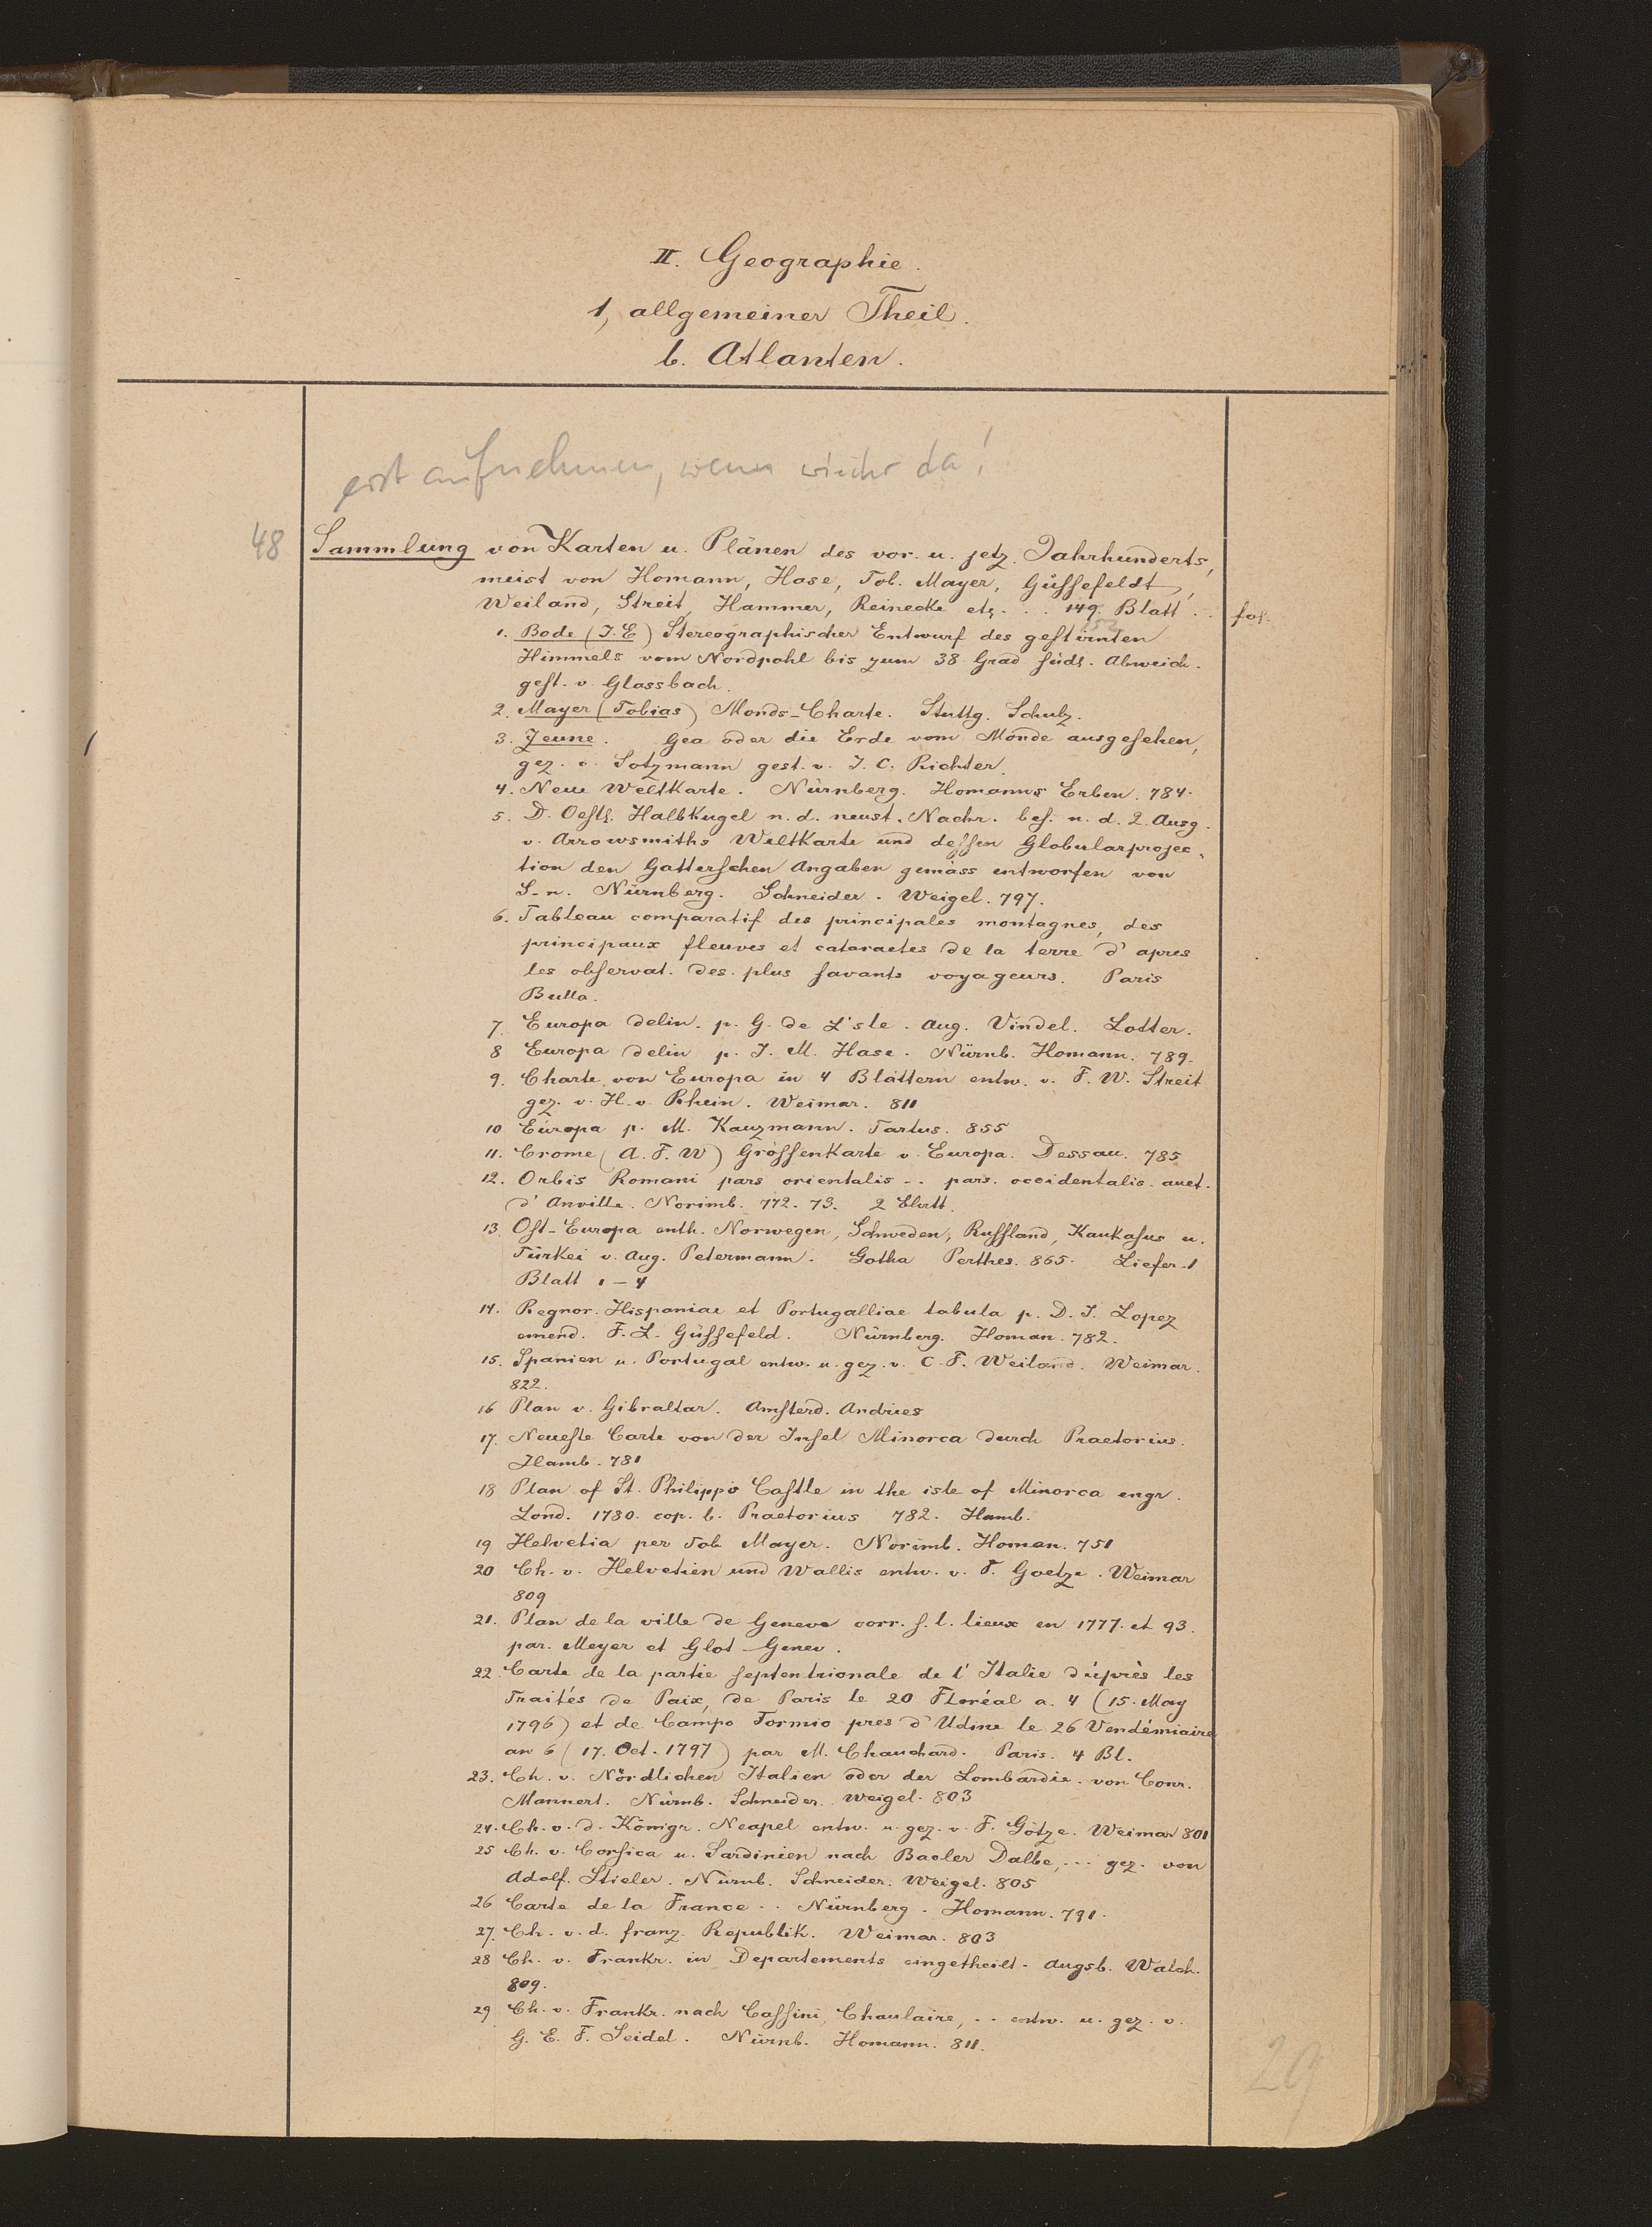 II. Geographie.
1, allgemeiner Theil.
b. Atlanten.
erst aufnehmen, wenn wieder da!
48 Sammlung von Karten u. Plänen des vor. u. jetz. Jahrhunderts,
meist von Homann, Hase, Tob. Mayer, Güssefeldt,
Weiland, Streit, Hammer, Reinecke etc. . . 149. Blatt . . fol.
152
1. Bode (J. E) Stereographischer Entwurf des gestirnten
Himmels vom Nordpohl bis zum 38 Grad südl. Abweich.
gest. v. Glassbach.
2. Mayer (Tobias) Monds-Charte. Stuttg. Schulz.
3. Zeune. Gea oder die Erde vom Monde ausgesehen,
gez. v. Sotzmann gest. v. J. C. Richter.
4. Neue Weltkarte. Nürnberg. Homanns Erben. 784.
5. D. Oestl. Halbkugel n. d. neust. Nachr. bes. n. d. 2. Ausg.
v. Arrowsmiths Weltkarte und dessen Globularprojec-
tion den Gatterschen Angaben gemäss entworfen von
S-n. Nürnberg. Schneider. Weigel. 797.
6. Tableau comparatif des principales montagnes, des
principaux fleuves et cataractes de la terre d'apres
les observat. des. plus savants voyageurs. Paris
Bulla.
7. Europa delin. p. G. de L'sle. Aug. Vindel. Lotter.
8 Europa delin p. J. M. Hase. Nürnb. Homann. 789.
9. Charte von Europa in 4 Blättern entw. v. F. W. Streit
gez. v. H. v. Rhein. Weimar. 811
10 Europa p. M. Kauzmann. Tartus. 855
11. Crome (A. F. W) Grössenkarte v. Europa. Dessau. 785
12. Orbis Romani pars orientalis .. pars. occidentalis. auct.
d'Anville. Norimb. 772. 73. 2 Blatt.
13. Ost-Europa enth. Norwegen, Schweden, Russland, Kaukasus u.
Türkei v. Aug. Petermann. Gotha Perthes. 865. Liefer. 1
Blatt 1-4
14. Regnor. Hispaniae et Portugalliae tabula p. D. J. Lopez
emend. F. L. Güssefeld. Nürnberg. Homan. 782.
15. Spanien u. Portugal entw. u. gez. v. C. F. Weiland. Weimar.
822.
16 Plan v. Gibraltar. Amsterd. Andries
17. Neueste Carte von der Insel Minorca durch Praetorius.
Hamb. 781
18 Plan of St. Philipp's Castle in the isle of Minorca engr.
Lond. 1780. cop. b. Praetorius 782. Hamb.
19 Helvetia per Tob. Mayer. Norimb. Homan. 751
20 Ch. v. Helvetien und Wallis entw. v. F. Goetze. Weimar
809
21. Plan de la ville de Geneve corr. s. l. lieux en 1777. et 93.
par. Meyer et Glot. Genev.
22. Carte de la partie septentrionale de l'Italie d'après les
Traités de Paix, de Paris le 20 Floréal a. 4 (15. May
1796) et de Campo Formio pres d'Udine le 26 Vendémiaire
an 6 (17. Oct. 1797) par M. Chauchard. Paris. 4 Bl.
23. Ch. v. Nördlichen Italien oder der Lombardie. von Conr.
Mannert. Nürnb. Schneider. Weigel. 803
24. Ch. v. d. Königr. Neapel entw. u. gez. v. F. Götze. Weimar 801
25 Ch. v. Corsica u. Sardinien nach Bacler Dalbe, ... gez. von
Adolf. Stieler. Nürnb. Schneider. Weigel. 805
26 Carte de la France .. Nürnberg. Homann. 791.
27. Ch. v. d. franz. Republik. Weimar. 803
28 Ch. v. Frankr. in Departements eingetheilt. Augsb. Walch.
809.
29 Ch. v. Frankr. nach Cassini, Chaulaire, .. entw. u. gez. v.
G. E. F. Seidel. Nürnb. Homann. 811.
29